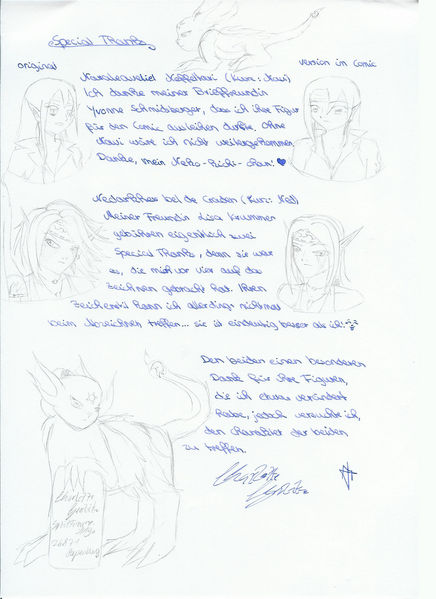 Special Thanks
original
version im Comic
Ich danke meiner Brieffreundin
Yvonne Schmidsberger, das ich ihre Figur
für den Comic ausleihen durfte. Ohne
Kawi wäre ich nicht weitergekommen
Danke, mein Neko-
bei de
Meiner Freundin Lisa Krummer
gebühren eigentlich zwei
Special Thanks, denn sie war
es, die mich vor vier auf das
zeichnen gebracht hat. Ihren
zeichenstil kann ich allerdings nichtmal
beim Abzeichnen treffen... sie ist eindeutig besser als ich!
Den beiden einen besonderen
Dank für ihre Figuren,
die ich etwas verändert
habe, jedoch versuchte ich,
den Charakter der beiden
zu treffen.